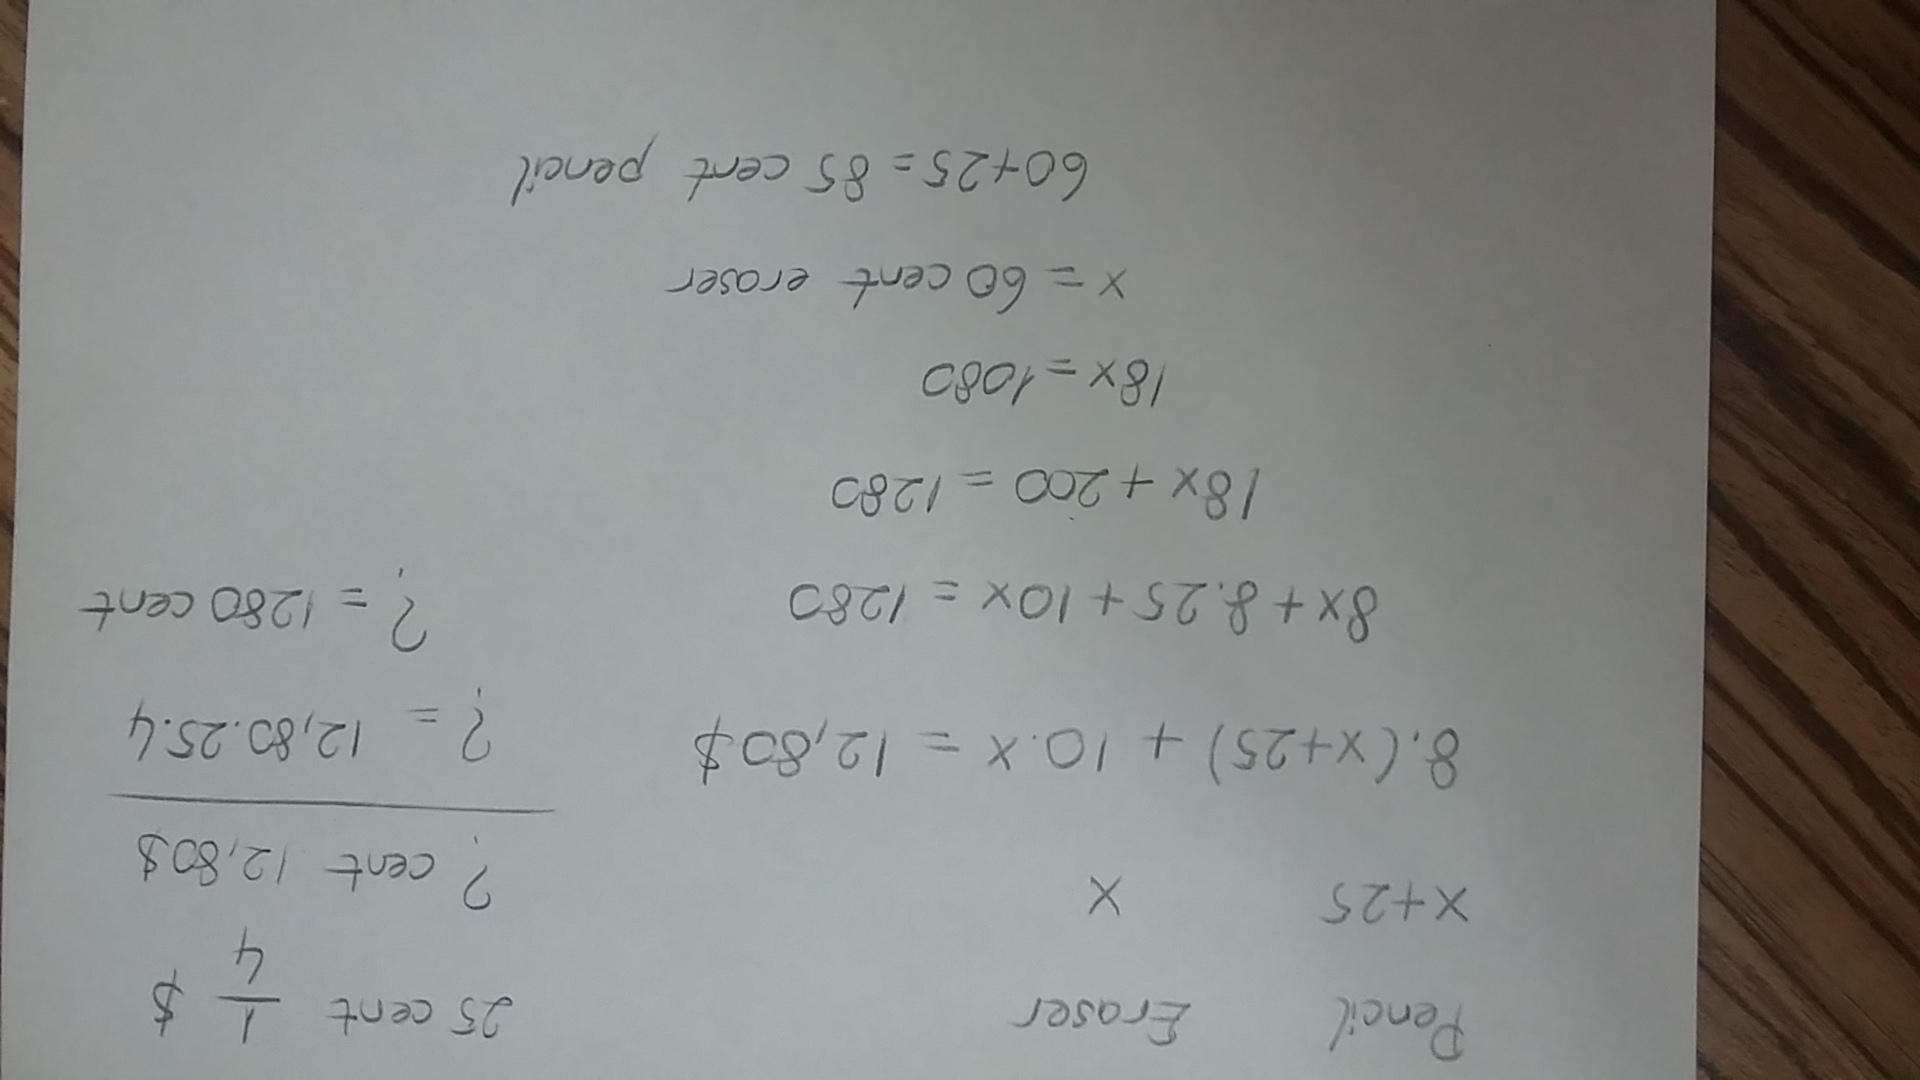 Pencil Eraser
x+25 x
8.(x+25) + 10.x = 12,80$
8x + 8.25 + 10x = 1280
18x + 200 = 1280
18x = 1080
x = 60 cent eraser
60+25 = 85 cent pencil
25 cent 1/4 $
? cent 12,80$
? = 12,80.25.4
? = 1280 cent